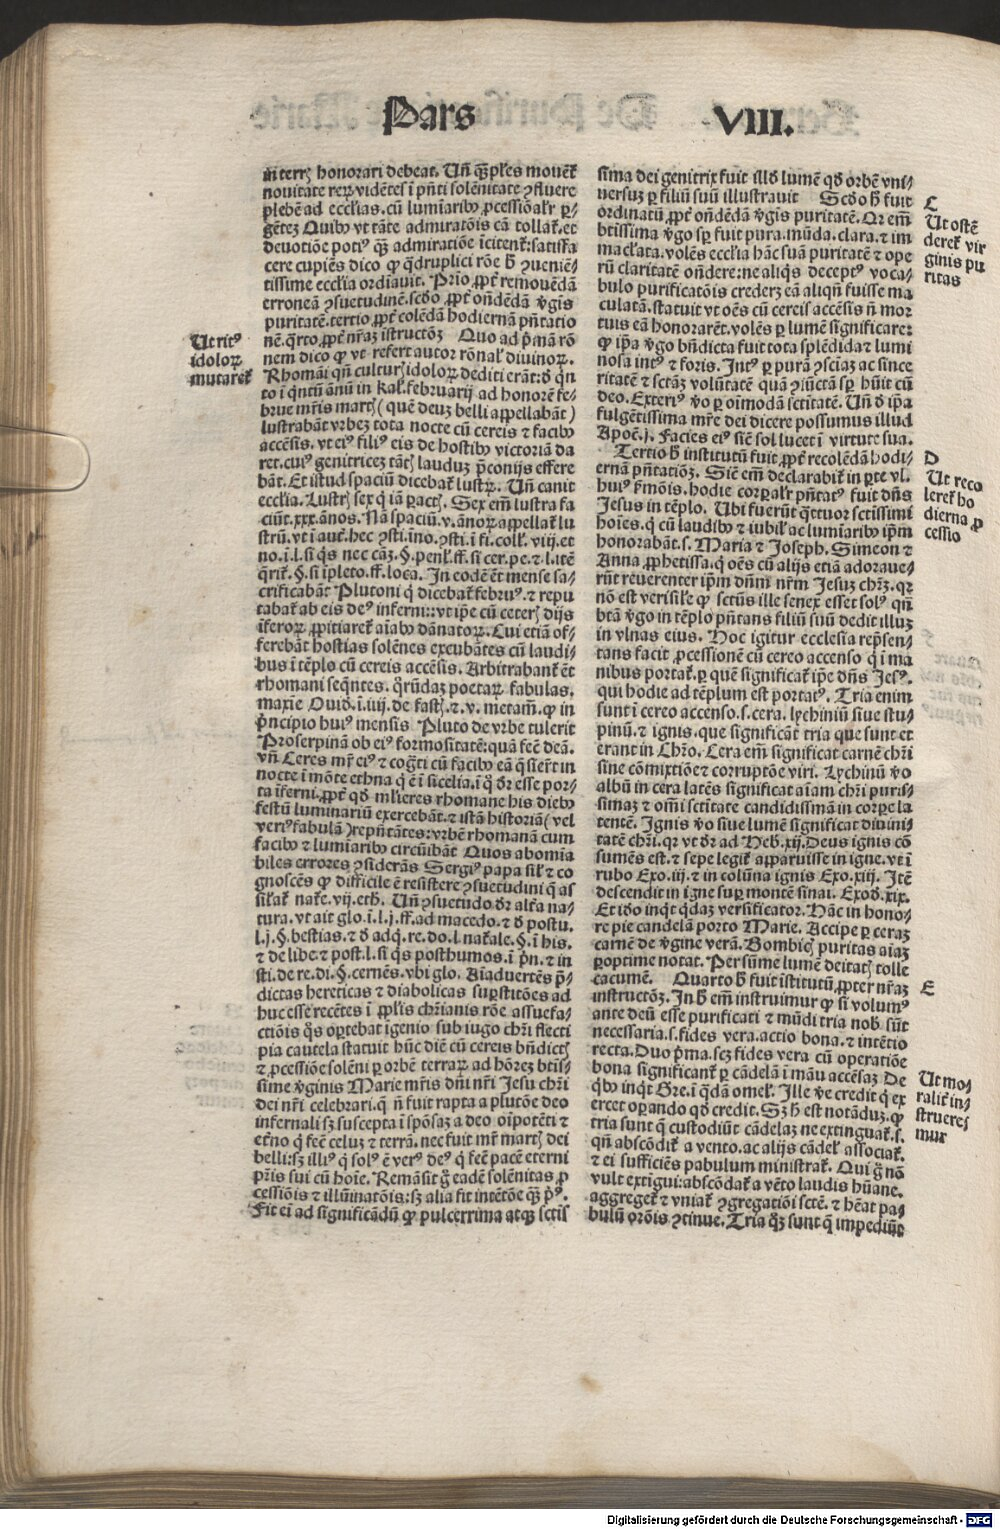 Pars VIII.
in terrꝭ honorari debeat. Uñ qꝫ pl̃es mouer̃
nouitate reꝝ vidẽtes ĩ pñti solẽnitate ꝯfluere
plebẽ ad eccl̃ias. cũ lumiarib⁹ ꝓcessiõal'r ꝑ-
gẽteꝫ Quib⁹ vt tãte admiratõis cã tollat̃. et
deuotiõe poti⁹ qꝫ admiratiõe ĩcitent̃: satisfa
cere cupiẽs dico ꝙ q̃druplici rõe h̃ ꝯueniẽ-
tissime eccl̃ia ordiauit. Prĩo ꝓpt̃ remouẽdã
erroneã ꝯsuetudinẽ. scdo ꝓpt̃ oñdẽdã v̑gis
puritatẽ. tertio ꝓpt̃ colẽdã hodiernã pñtatio
nẽ. q̃rto ꝓpt̃ nr̃aꝫ ĩstructõꝫ Quo ad p̃mã rõ
nem dico ꝙ vt refert autor rõnal' diuinoꝝ.
Rhomãi qñ culturꝭ idoloꝝ dediti erãt: ĩ q̃n
to ĩ q̃ntũ ãnũ in kal'. februarij ad honorẽ fe-
brue mr̃is martꝭ (quẽ deuꝫ belli appellabãt)
lustrabãt vrbeꝫ tota nocte cũ cereis ⁊ facib⁹
accẽsis. vt ei⁹ fili⁹ eis de hostib⁹ victoriã da
ret. cui⁹ genitriceꝫ tãtꝭ laudũ p̃conijs effere
bãt. Et istud spaciũ dicebat̃ lustrũ. Uñ canit
eccl̃ia. Lustrꝭ sex q̃ iã ꝑactꝭ. Sex em̃ lustra fa
ciũt. xxx. ãnos. Nã spaciũ. v. ãnoꝝ appellat̃ lu
strũ. vt ĩ aut̃. hec ꝯsti. ĩno. ꝯsti. ĩ fi. coll'. viij. et
no. ĩ. l. si q̃s nec cãꝫ. §. penl'. ff. si cer. pe. ⁊. l. itẽ
q̃rit̃. §. si ĩpleto. ff. loca. In eodẽ ẽt mense sa-
crificabãt Plutoni q̃ dicebat̃ febru⁹. ⁊ repu
tabat̃ ab eis de⁹ inferni: vt ip̃e cũ ceterꝭ dijs
ĩferoꝝ ꝓpitiaret̃ aĩab⁹ dãnatoꝝ. Cui etiã of-
ferebãt hostias solẽnes excubãtes cũ laudi-
bus ĩ tẽplo cũ cereis accẽsis. Arbitrabant̃ ẽt
rhomani seq̃ntes. q̃rũdaꝫ poetaꝝ fabulas.
maxĩe Ouid. ĩ. iiij. de fastꝭ. ⁊. v. metam̃. ꝙ in
p̃ncipio hui⁹ mensis Pluto de vrbe tulerit
Proserpinã ob ei⁹ formositatẽ: quã fec̃ deã.
vñ Ceres mr̃ ei⁹ ⁊ cog̃ti cũ facib⁹ eã q̃sier̃t in
nocte ĩ mõte ethna q̃ ẽ ĩ sicelia. ĩ q̃ dr̃ esse por-
ta ĩferni. ꝓpt̃ qd̃ ml̃ieres rhomane his dieb⁹
festũ luminariũ exercebãt. ⁊ istã historiã (vel
veri⁹ fabulã) rep̃ñtãtes: vrbẽ rhomanã cum
facib⁹ ⁊ lumiarib⁹ circuĩbãt Quos abomia
biles errores ꝯsiderãs Sergi⁹ papa sil' ⁊ co
gnoscẽs ꝙ difficile ẽ resistere ꝯsuetudini q̃ as
sil'at̃ nat̃e. vij. eth. Uñ ꝯsuetudo dr̃ alt̃a na-
tura. vt ait glo. ĩ. l. j. ff. ad macedo. ⁊ d̃ postu.
l. j. §. bestias. ⁊ d̃ adq̃. re. do. l. nat̃ale. §. ĩ his.
⁊ de libe. ⁊ post. l. si q̃s posthumos. ĩ p̃n. ⁊ in
sti. de re. di. §. cernẽs. vbi glo. Aĩaduertẽs p̃-
dictas hereticas ⁊ diabolicas suꝑstitiões ad
huc esse recẽtes ĩ ppl̃is chr̃ianis rõe assuefa-
ctiõis q̃s oꝑtebat ĩgenio sub iugo chr̃i flecti
pia cautela statuit hũc diẽ cũ cereis bñdictꝭ
⁊ ꝓcessiõe solẽni ꝑ orbẽ terraꝝ ad hõreꝫ btĩs-
sime v̑ginis Marie mr̃is dñi nr̃i Jesu chr̃i
dei nr̃i celebrari. q̃ ñ fuit rapta a plutõe deo
infernali sꝫ suscepta ĩ spõsaꝫ a deo oĩpotẽti ⁊
et̃no q̃ fec̃ celuꝫ ⁊ terrã. nec fuit mr̃ martꝭ dei
belli: sꝫ illi⁹ q̃ sol⁹ ẽ ver⁹ de⁹ q̃ fec̃ pacẽ eterni
pr̃is sui cũ hoĩe. Remãsit g̃ eadẽ solẽnitas ꝓ
cessiõis ⁊ illũinatõis: sꝫ alia fit intẽtõe qꝫ p̃⁹.
Fit em̃ ad significãdũ ꝙ pulcerrima atqꝫ sctĩs
Ut rit⁹
idoloꝝ
mutaret̃
sima dei genitrix fuit illd̃ lumẽ qd̃ orbẽ vni-
uersuꝫ ꝑ filiũ suũ illustrauit Scdo h̃ fuit
ordinatũ ꝓpt̃ oñdẽdã v̑gis puritatẽ. Qr em̃
btĩssima v̑go sp̃ fuit pura. mũda. clara. ⁊ im
maclata. volẽs eccl̃ia hãc suã puritatẽ ⁊ ope
rũ claritatẽ oñdere: ne aliq̃s decept⁹ voca-
bulo purificatõis crederꝫ eã aliqñ fuisse ma
culatã. statuit vt oẽs cũ cereis accẽsis ñ mor
tuis eam honorarẽt. volẽs ꝑ lumẽ significare:
ꝙ ip̃a v̑go bñdicta fuit tota splẽdida ⁊ lumi
nosa int⁹ ⁊ foris. Int⁹ ꝑ purã ꝯsciaꝫ ac since
ritatẽ ⁊ sctãꝫ volũtatẽ quã ꝯiũctã sꝑ hũit cũ
deo. Exteri⁹ v̑o ꝑ oĩmodã sctitatẽ. Uñ d̃ ip̃a
fulgẽtissima mr̃e dei dicere possumus illud
Apoc̃. j. Facies ei⁹ sic̃ sol lucet ĩ virtute sua.
Tertio h̃ institutũ fuit ꝓpt̃ recolẽdã hodi-
ernã pñtatiõꝫ. Sic̃ em̃ declarabit̃ in ꝑte vl.
hui⁹ s̃mõis. hodie corꝑal'r pñtat⁹ fuit dñs
Jesus in tẽplo. Ubi fuerũt q̃ttuor sctissimi
hoĩes. q̃ cũ laudib⁹ ⁊ iubil' ac lumiarib⁹ ip̃m
honorabãt. s. Maria ⁊ Joseph. Simeon ⁊
Anna ꝓphetissa. q̃ oẽs cũ alijs etiã adoraue-
rũt reuerenter ip̃m dñm nr̃m Jesuꝫ chr̃ꝫ. qr
nõ est verisil'e ꝙ sctũs ille senex esset sol⁹ qñ
btã v̑go in tẽplo pñtans filiũ suũ dedit illuꝫ
in vlnas eius. Hoc igitur ecclesia rep̃sen-
tans facit ꝓcessionẽ cũ cereo accenso q̃ ĩ ma
nibus portat̃. ꝑ quẽ significat̃ ip̃e dñs Jes⁹.
qui hodie ad tẽplum est portat⁹. Tria enim
sunt ĩ cereo accenso. s. cera. lychiniũ siue stu-
pinũ. ⁊ ignis. que significãt tria que sunt et
erant in Chr̃o. Cera em̃ significat carnẽ chr̃i
sine cõmixtiõe ⁊ corruptõe viri. Lychinũ v̑o
albũ in cera latẽs significat aĩam chr̃i puris-
simaꝫ ⁊ om̃i sctitate candidissimã in corꝑe la
tentẽ. Ignis v̑o siue lumẽ significat diuini-
tatẽ chr̃i. qr vt dr̃ ad Heb. xij. Deus ignis cõ
sumẽs est. ⁊ sepe legit̃ apparuisse in igne. vt ĩ
rubo Exo. iij. ⁊ in colũna ignis Exo. xiij. Itẽ
descendit in igne suꝑ montẽ sinai. Exod̃. xix.
Et ido inq̃t q̃daꝫ versificator. Hãc in hono-
re pie candelã porto Marie. Accipe ꝑ ceraꝫ
carnẽ de v̑gine verã. Bombicꝭ puritas aĩaꝫ
ꝑoptime notat. Per sũme lumẽ deitatꝭ tolle
cacumẽ. Quarto h̃ fuit ĩstitutũ ꝓpter nr̃aꝫ
instructõꝫ. In h̃ em̃ instruimur ꝙ si volum⁹
ante deũ esse purificati ⁊ mũdi tria nob̃ sũt
necessaria. s. fides vera. actio bona. ⁊ intẽtio
recta. Duo p̃ma. scꝫ fides vera cũ operatiõe
bona significant̃ ꝑ cãdelã ĩ mãu accẽsaꝫ De
q̃b⁹ inq̃t Gre. ĩ q̃dã omel'. Ille v̑e credit q̃ ex
ercet oꝑando qd̃ credit. Sꝫ h̃ est notãduꝫ. ꝙ
tria sunt q̃ custodiũt cãdelaꝫ ne extinguat̃. s.
qñ abscõdit̃ a vento. ac alijs cãdel' associat̃.
⁊ ei sufficiẽs pabulum ministrat̃. Qui g̃ nõ
vult extĩgui: abscõdat̃ a vẽto laudis hũane.
aggreget̃ ⁊ vniat̃ ꝯgregatiõi sctẽ. ⁊ hẽat pa-
bulũ orõis ꝯtinue. Tria q̃ꝫ sunt q̃ impediũt
C
Ut ostẽ
deret̃ vir
ginis pu
ritas
D
Ut reco
leret̃ ho
dierna ꝓ
cessio
E
Ut mo-
ralit̃ in-
strueret̃
mur
Digitalisierung gefördert durch die Deutsche Forschungsgemeinschaft - DFG